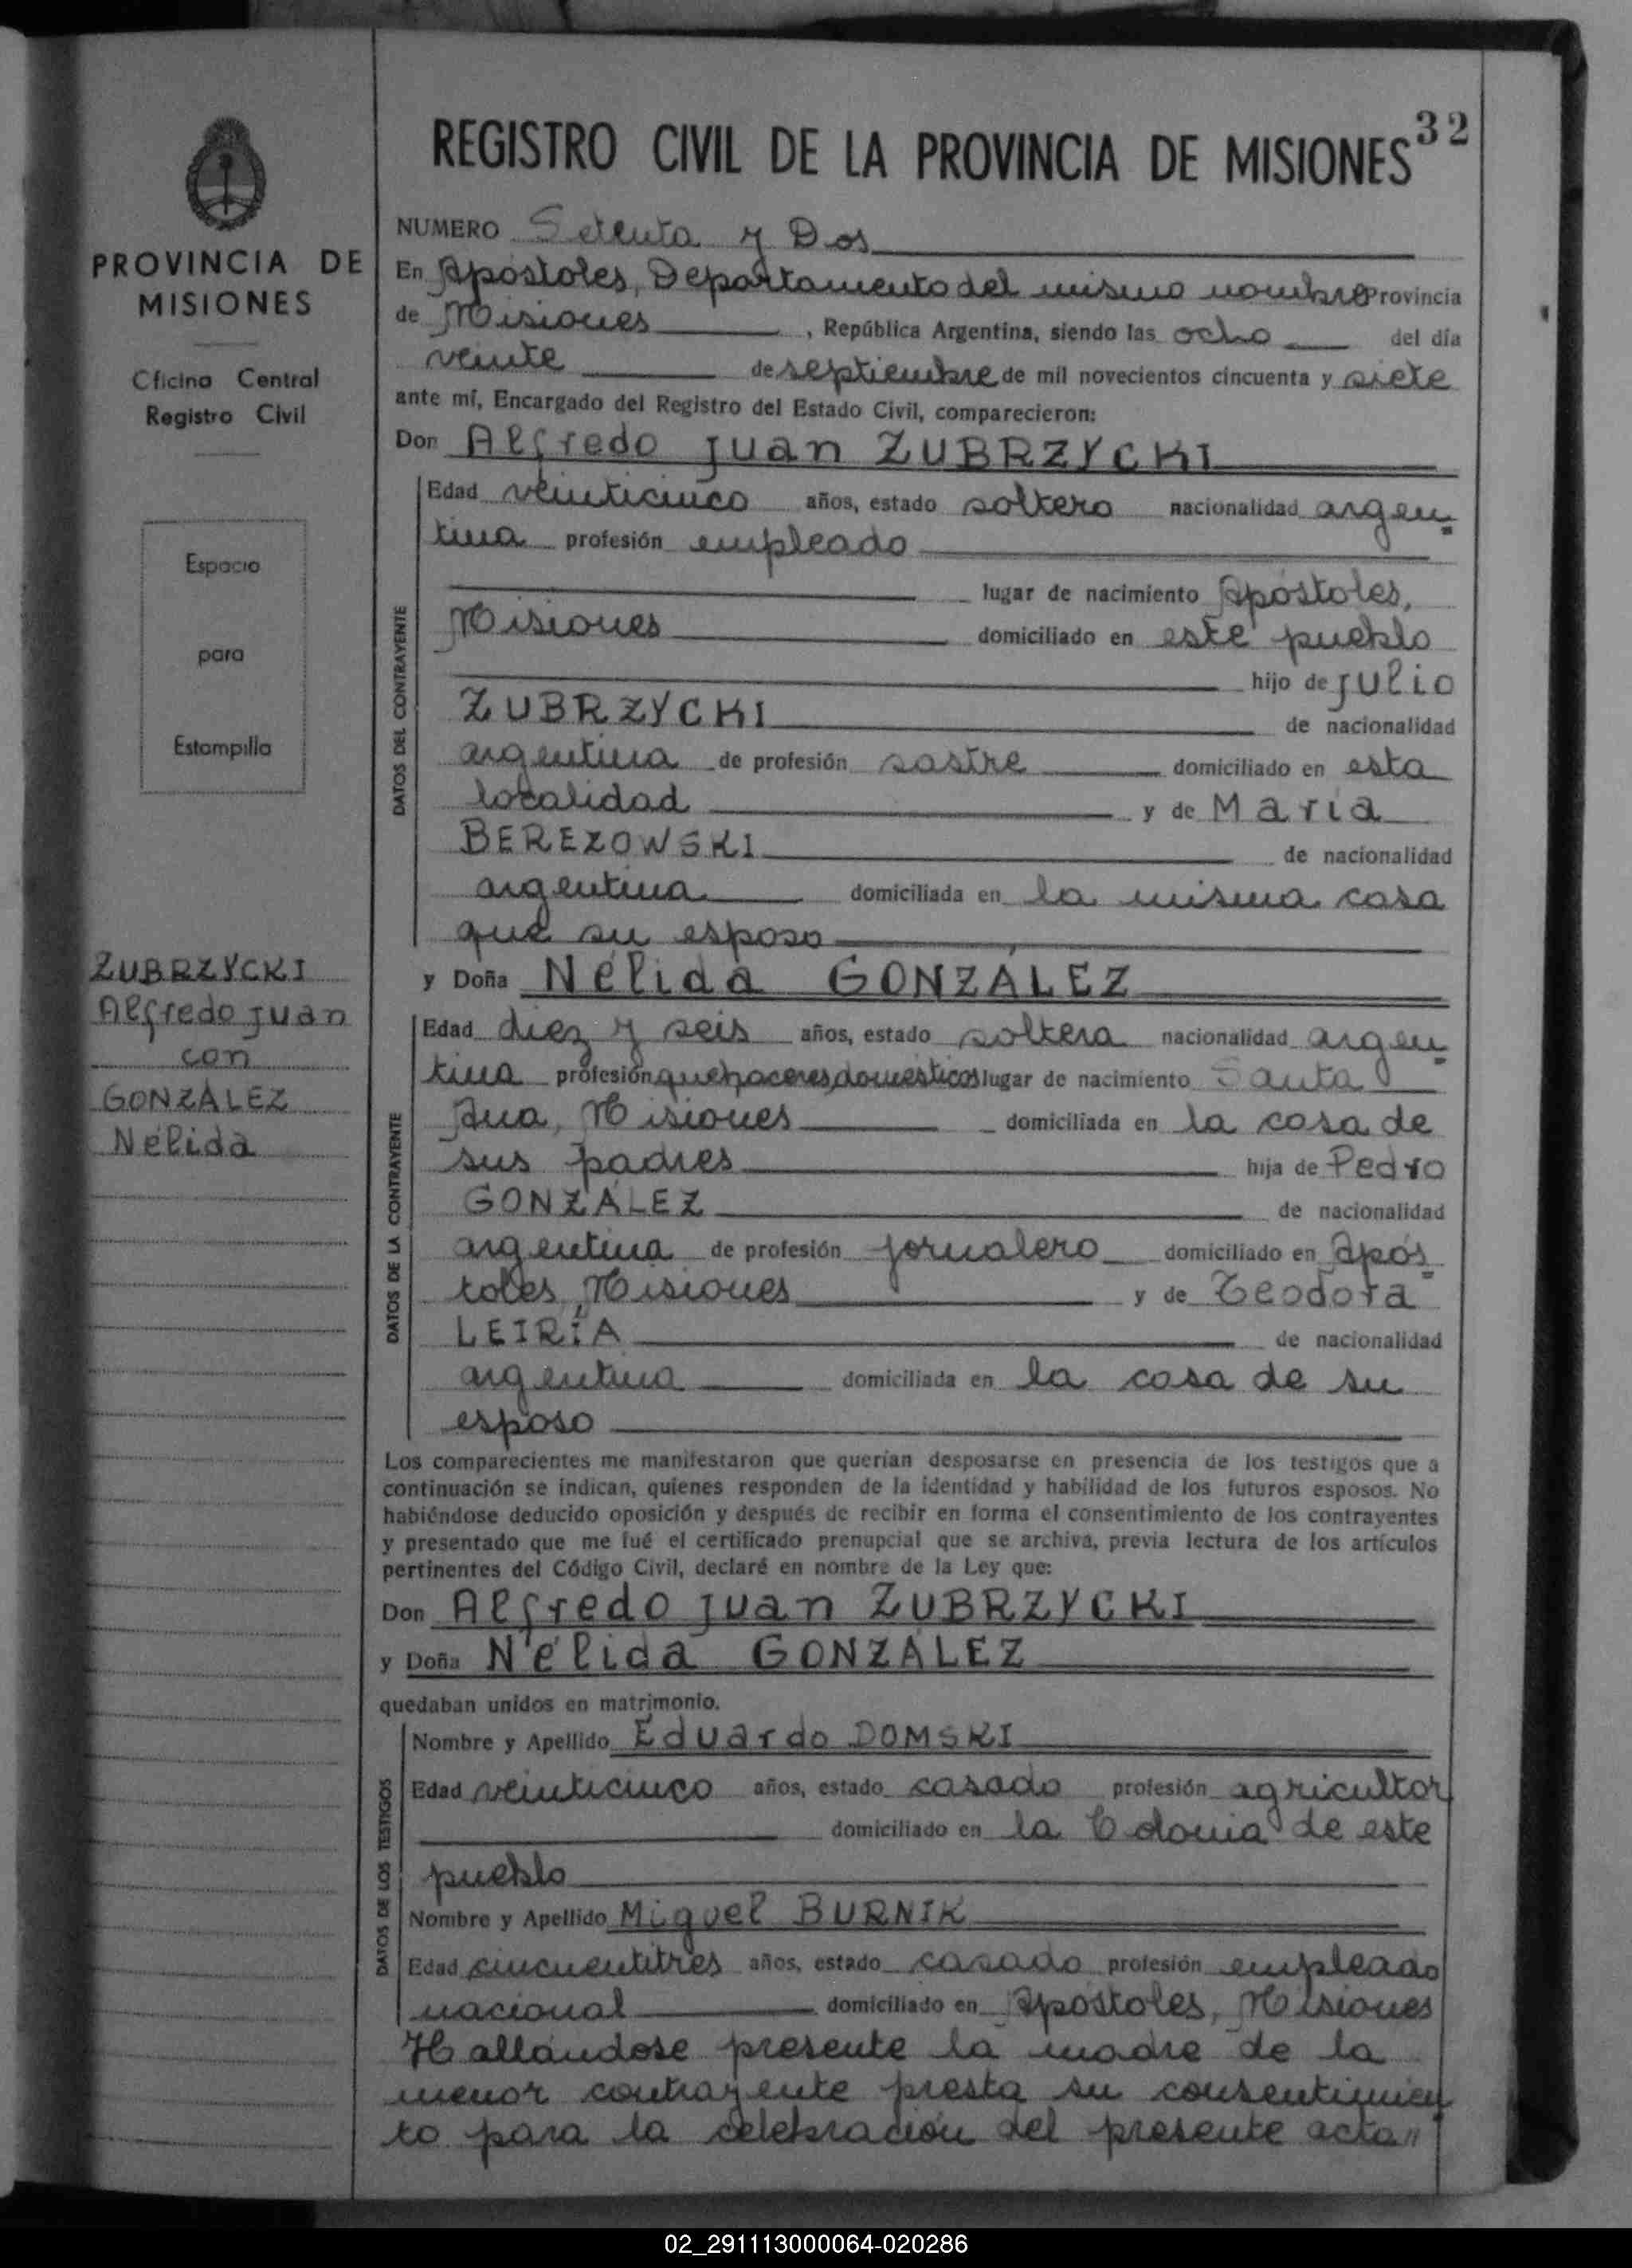 32
REGISTRO CIVIL DE LA PROVINCIA DE MISIONES
PROVINCIA DE
MISIONES
Oficina Central
Registro Civil
Espacio
para
Estampilla
ZUBRZYCKI
Alfredo Juan
con
GONZÁLEZ
Nélida
NUMERO Setenta y Dos
En Apóstoles, Departamento del mismo nombre Provincia
de Misiones, República Argentina, siendo las ocho del día
veinte de septiembre de mil novecientos cincuenta y siete
ante mí, Encargado del Registro del Estado Civil, comparecieron:
Don Alfredo Juan ZUBRZYCKI
DATOS DEL CONTRAYENTE
Edad veinticinco años, estado soltero nacionalidad argen-
tina profesión empleado
lugar de nacimiento Apóstoles,
Misiones domiciliado en este pueblo
hijo de Julio
ZUBRZYCKI de nacionalidad
argentina de profesión sastre domiciliado en esta
localidad y de María
BEREZOWSKI de nacionalidad
argentina domiciliada en la misma casa
que su esposo
y Doña Nélida GONZÁLEZ
DATOS DE LA CONTRAYENTE
Edad diez y seis años, estado soltera nacionalidad argen-
tina profesión quehaceres domésticos lugar de nacimiento Santa
Ana, Misiones domiciliada en la casa de
sus padres hija de Pedro
GONZÁLEZ de nacionalidad
argentina de profesión jornalero domiciliado en Após-
toles, Misiones y de Teodora
LEIRÍA de nacionalidad
argentina domiciliada en la casa de su
esposo
Los comparecientes me manifestaron que querían desposarse en presencia de los testigos que a
continuación se indican, quienes responden de la identidad y habilidad de los futuros esposos. No
habiéndose deducido oposición y después de recibir en forma el consentimiento de los contrayentes
y presentado que me fué el certificado prenupcial que se archiva, previa lectura de los artículos
pertinentes del Código Civil, declaré en nombre de la Ley que:
Don Alfredo Juan ZUBRZYCKI
y Doña Nélida GONZÁLEZ
quedaban unidos en matrimonio.
DATOS DE LOS TESTIGOS
Nombre y Apellido Eduardo DOMSKI
Edad veinticinco años, estado casado profesión agricultor
domiciliado en la Colonia de este
pueblo
Nombre y Apellido Miguel BURNIK
Edad cincuentitrés años, estado casado profesión empleado
nacional domiciliado en Apóstoles, Misiones
Hallándose presente la madre de la
menor contrayente presta su consentimien
to para la celebración del presente acta //
02_291113000064-020286